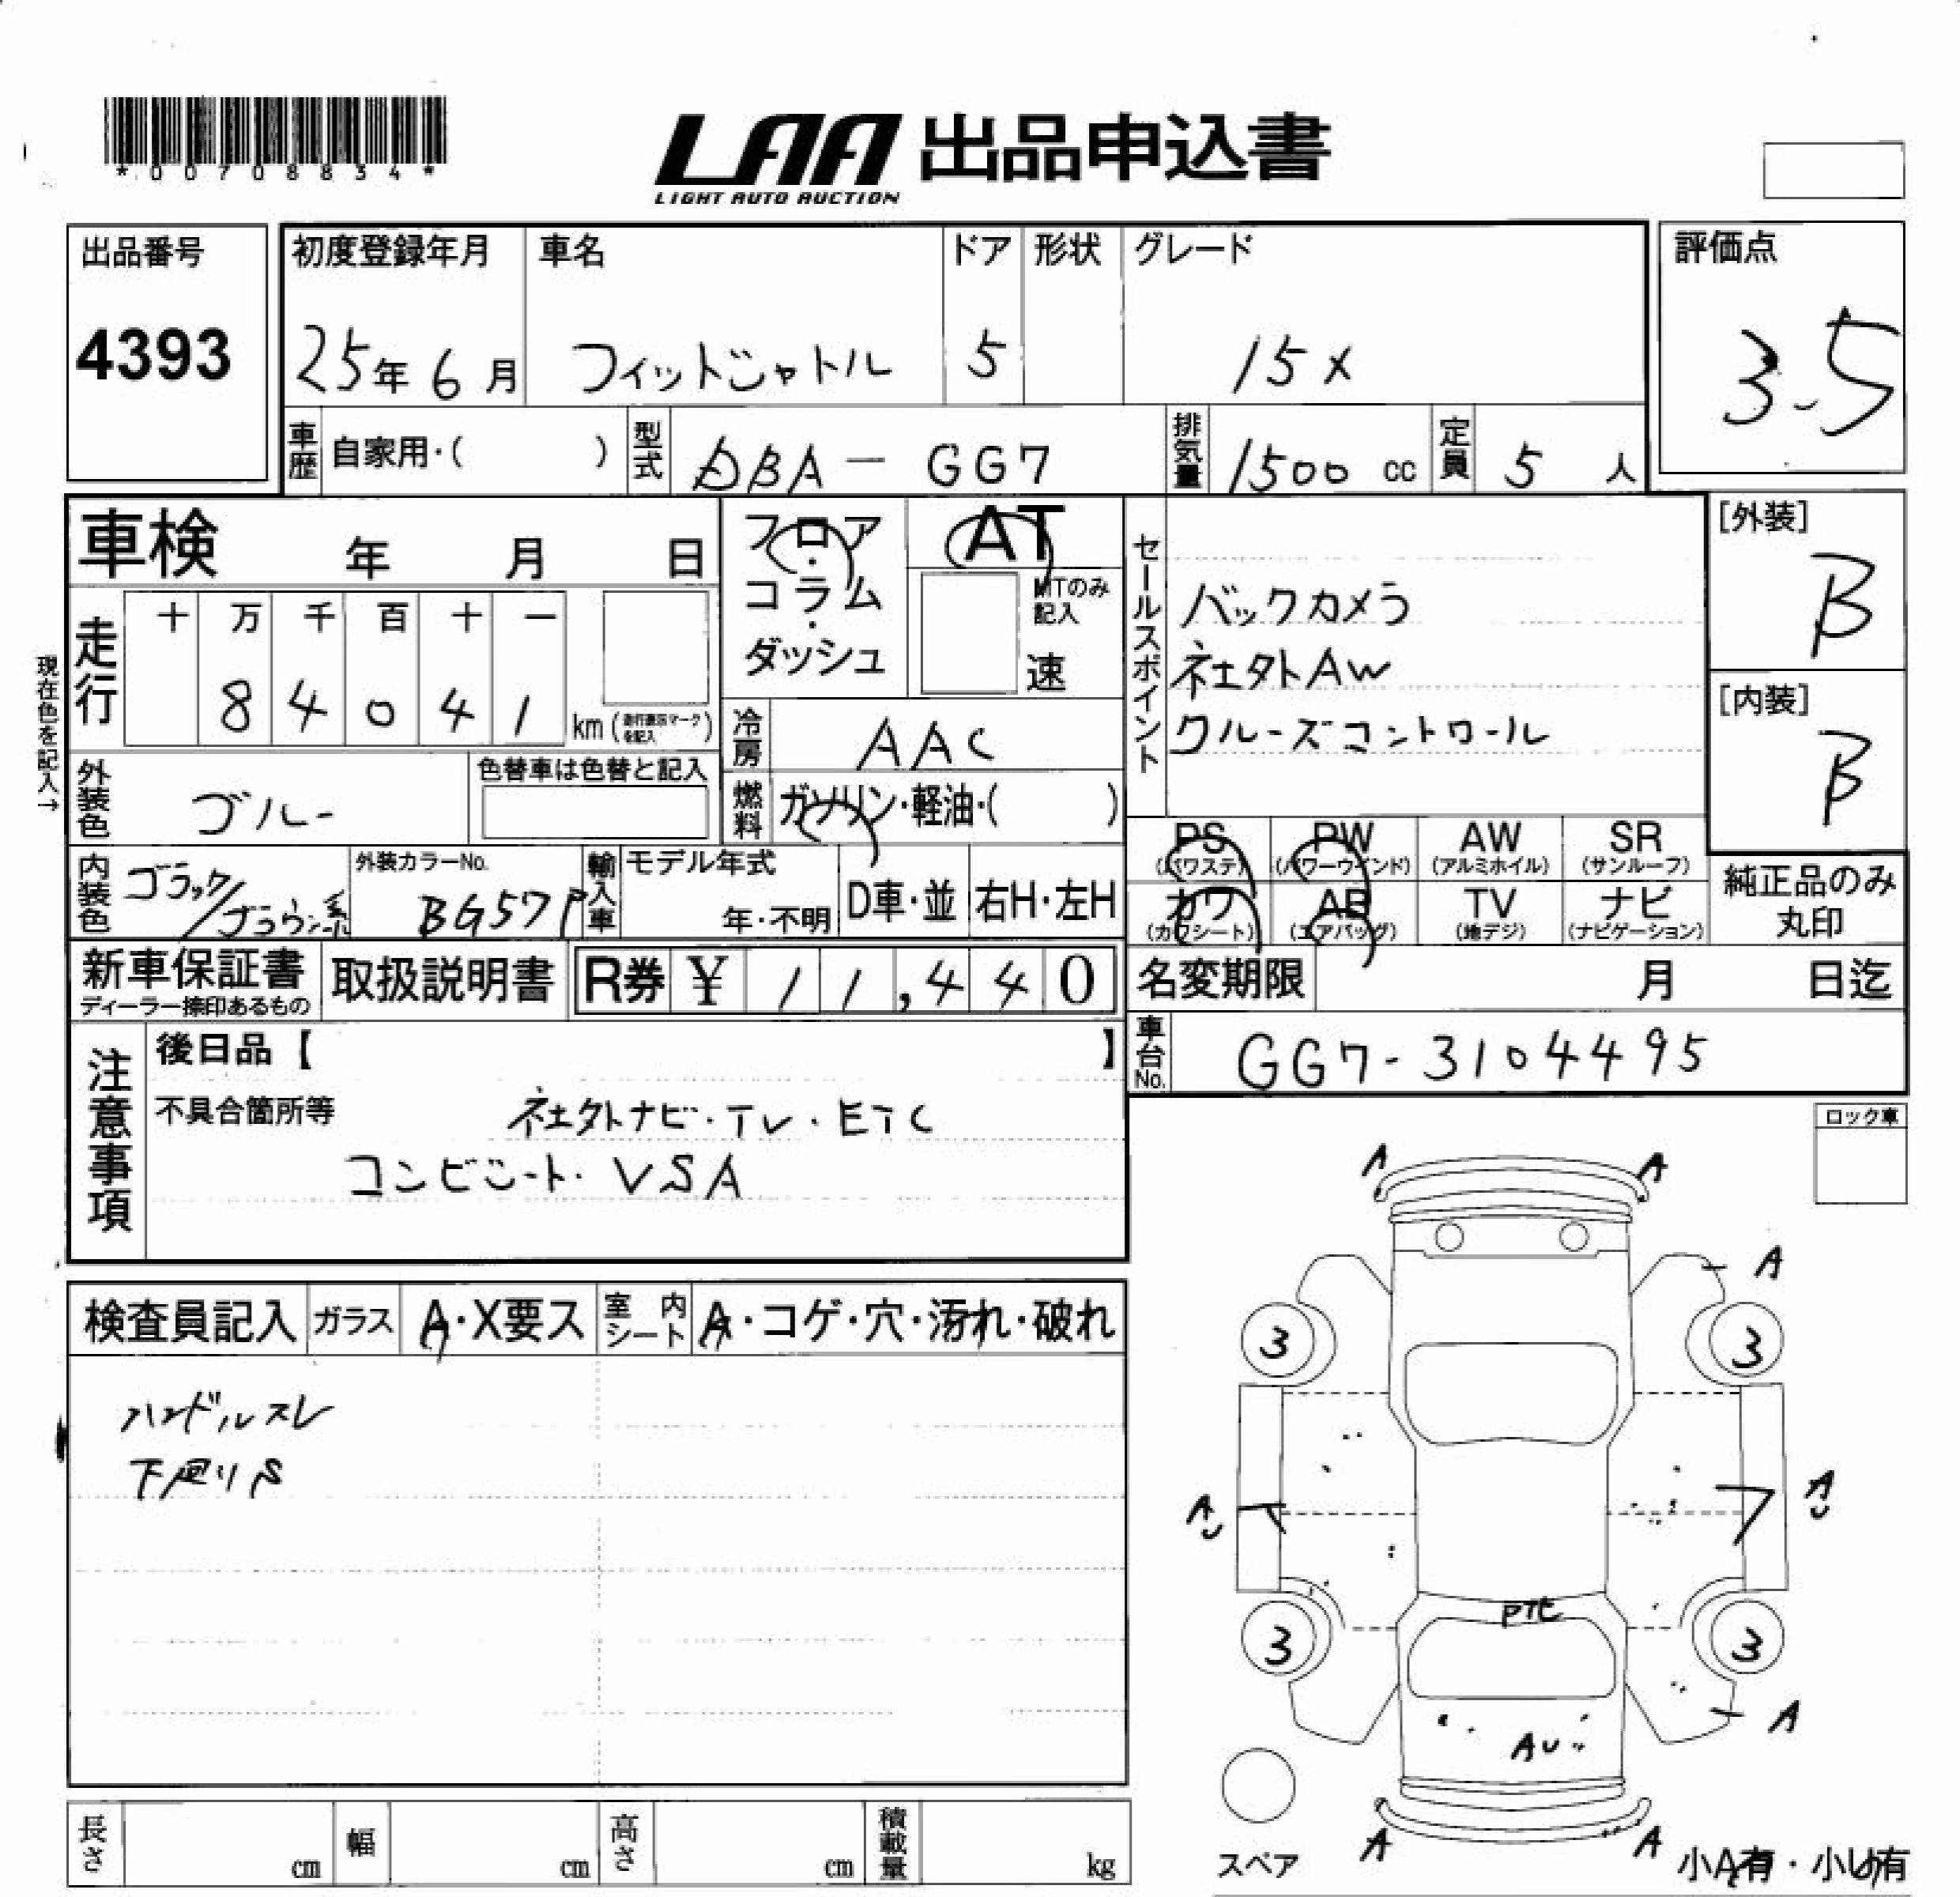 *00708834*
LAA 出品申込書
LIGHT AUTO AUCTION
出品番号
4393
初度登録年月 車名 ドア 形状 グレード
25年 6月 フィットシャトル 5 15X
評価点
3.5
車歴 自家用・( ) 型式 DBA - GG7 排気量 1500 cc 定員 5 人
車検 年 月 日
フロア・コラム・ダッシュ
AT
MTのみ記入
速
現在色を記入→
走行 十 万 千 百 十 一
8 4 0 4 1 km (走行表示マークを記入)
冷房 AAC
燃料 ガソリン・軽油・( )
セールスポイント
バックカメラ
社外AW
クルーズコントロール
[外装]
B
[内装]
B
外装色 ブルー 色替車は色替と記入
内装色 ブラック/ブラウン系 外装カラーNo. BG57P
輸入車 モデル年式 年・不明 D車・並 右H・左H
PS (パワステ) PW (パワーウインド) AW (アルミホイル) SR (サンルーフ)
カワ (カワシート) AB (エアバッグ) TV (地デジ) ナビ (ナビゲーション)
純正品のみ丸印
新車保証書 ディーラー捺印あるもの 取扱説明書 R券 ¥ 11,440
名変期限 月 日迄
車台No. GG7-3104495
注意事項
後日品【 】
不具合箇所等 社外ナビ・TV・ETC
コンビシート・VSA
ロック車
検査員記入 ガラス A・X要ス 室内シート A・コゲ・穴・汚れ・破れ
ハンドルスレ
下廻りS
A A
A
3 3
AU AU
PTセ
3 3
A
AU
A A
スペア
小A有・小U有
長さ cm 幅 cm 高さ cm 積載量 kg